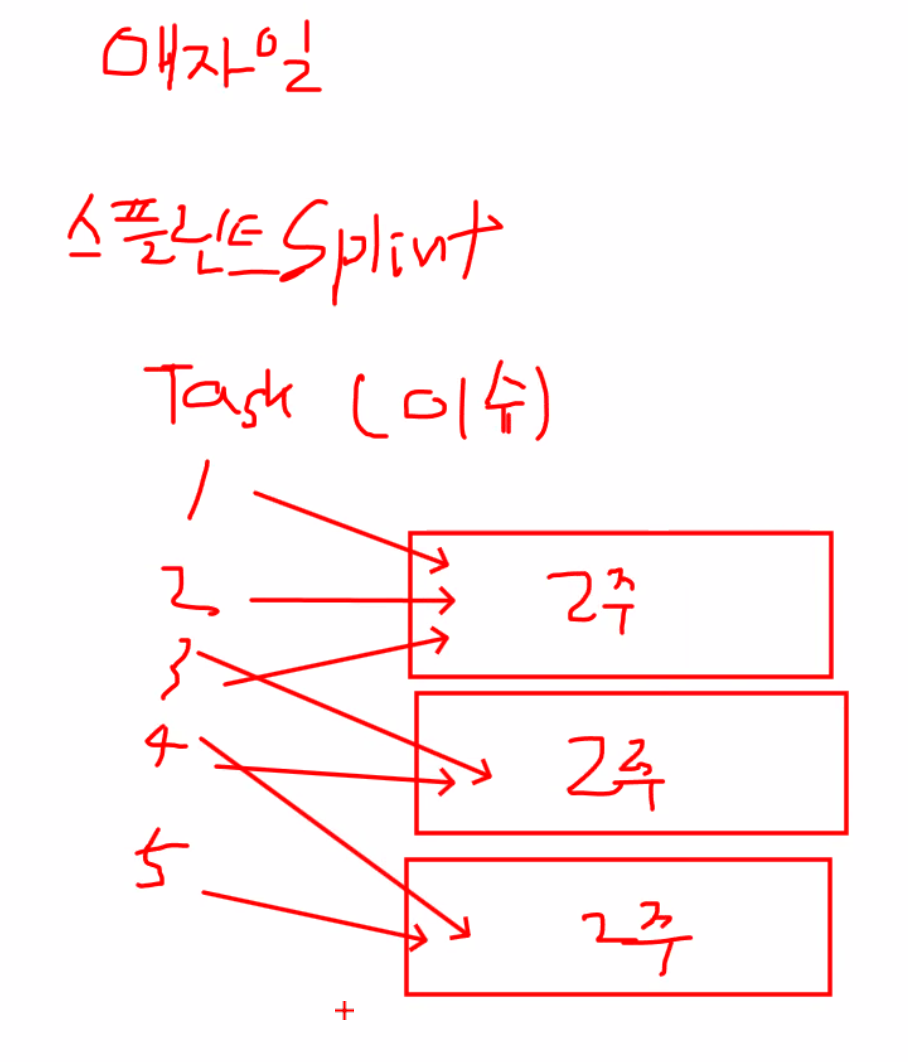 애자일
스플린트 Splint
Task (이슈)
1
2
3
4
5
2주
2주
2주